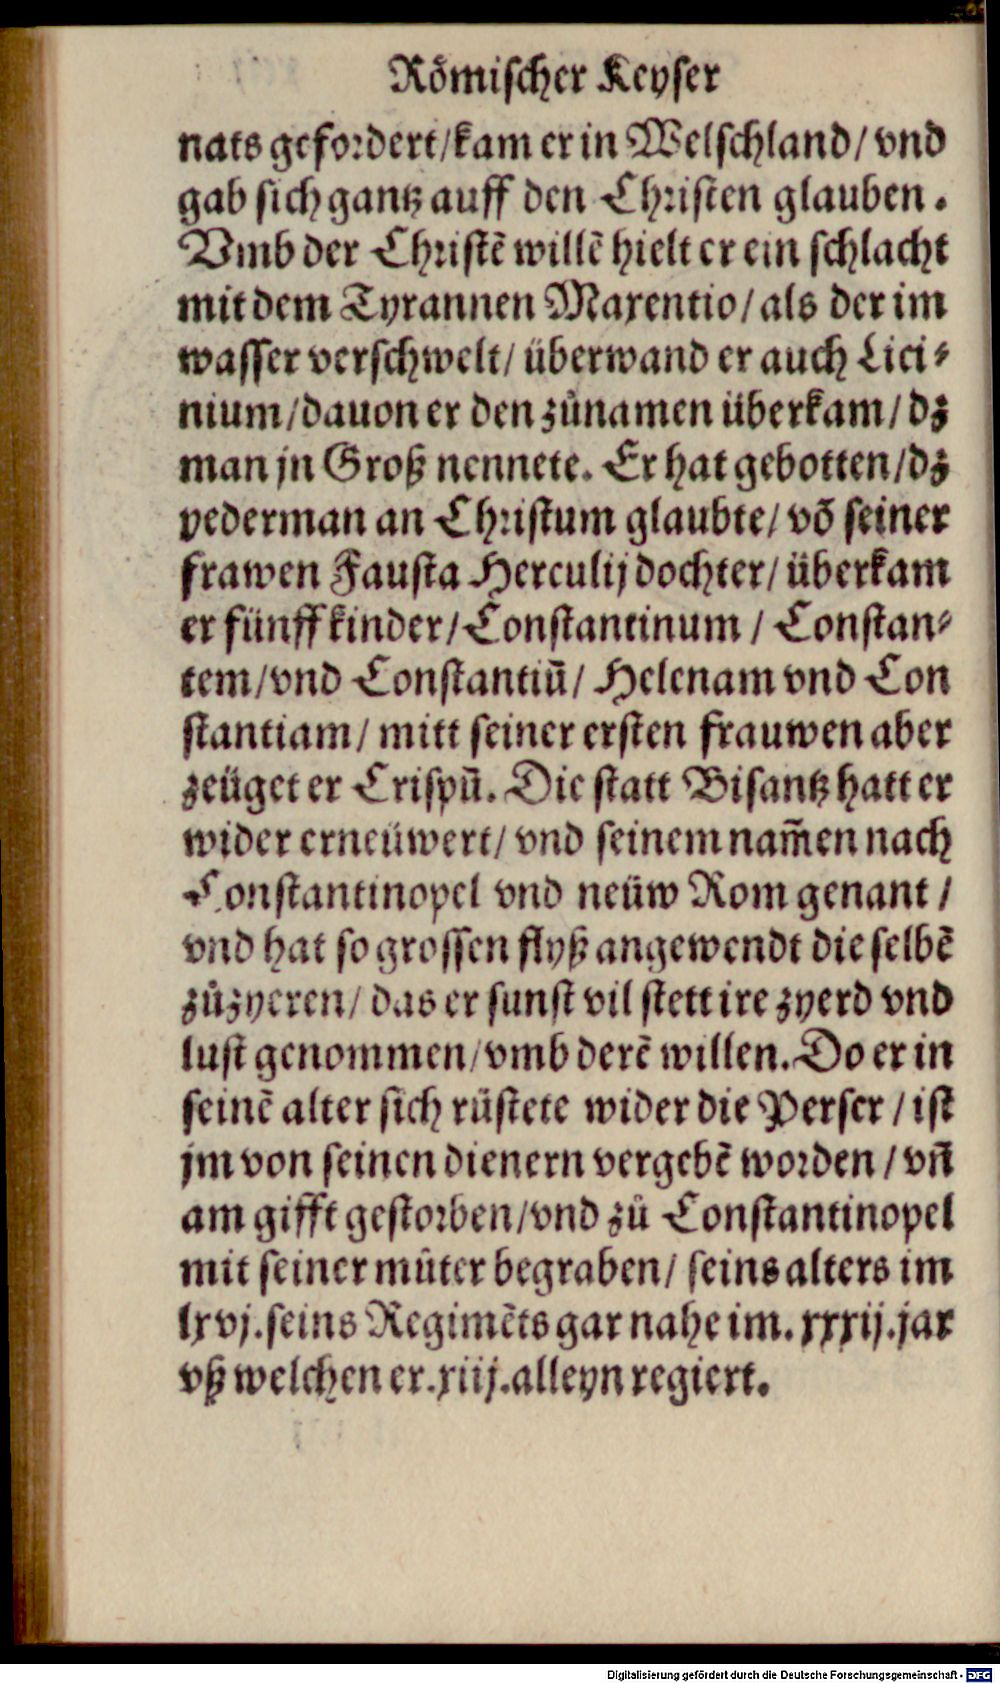 Roͤmischer Keyser
nats gefordert/kam er in Welschland/ vnd
gab sich gantz auff den Christen glauben.
Vmb der Christẽ willẽ hielt er ein schlacht
mit dem Tyrannen Maxentio/ als der im
wasser verschwelt/ überwand er auch Lici⸗
nium/dauon er den zůnamen überkam/ dz
man jn Groß nennete. Er hat gebotten/dz
yederman an Christum glaubte/ võ seiner
frawen Fausta Herculij dochter/ überkam
er fünff kinder/Constantinum / Constan⸗
tem/vnd Constantiũ/ Helenam vnd Con
stantiam/ mitt seiner ersten frauwen aber
zeüget er Crispũ. Die statt Bisantz hatt er
wider erneüwert/ vnd seinem nam̃en nach
Constantinopel vnd neüw Rom genant /
vnd hat so grossen flyß angewendt die selbẽ
zůzyeren/ das er sunst vil stett ire zyerd vnd
lust genommen/vmb derẽ willen. Do er in
seinẽ alter sich rüstete wider die Perser / ist
jm von seinen dienern vergebẽ worden / vñ
am gifft gestorben/vnd zů Constantinopel
mit seiner můter begraben/ seins alters im
lxvj.seins Regimẽts gar nahe im. xxxij.jar
vß welchen er.xiij.alleyn regiert.
Digitalisierung gefördert durch die Deutsche Forschungsgemeinschaft - DFG